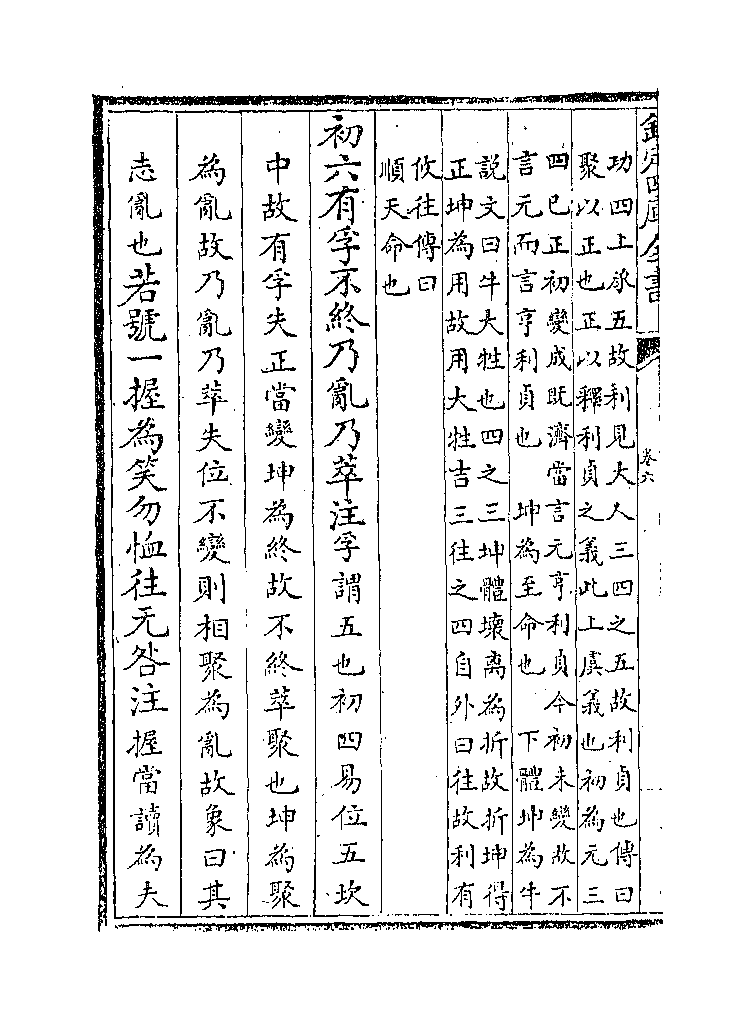 欽定四庫全書 卷六
功四上承五故利見大人三四之五故利貞也傳曰
聚以正也正以釋利貞之義此上虞義也初為元三
四已正初變成既濟當言元亨利貞今初未變故不
言元而言亨利貞也 坤為至命也 下體坤為牛
說文曰牛大牲也四之三坤體壞离為折故折坤得
正坤為用故用大牲吉三往之四自外曰往故利有
攸往傳曰
順天命也
初六有孚不終乃亂乃萃注孚謂五也初四易位五坎
中故有孚失正當變坤為終故不終萃聚也坤為聚
為亂故乃亂乃萃失位不變則相聚為亂故象曰其
志亂也若號一握為笑勿恤往无咎注握當讀為夫